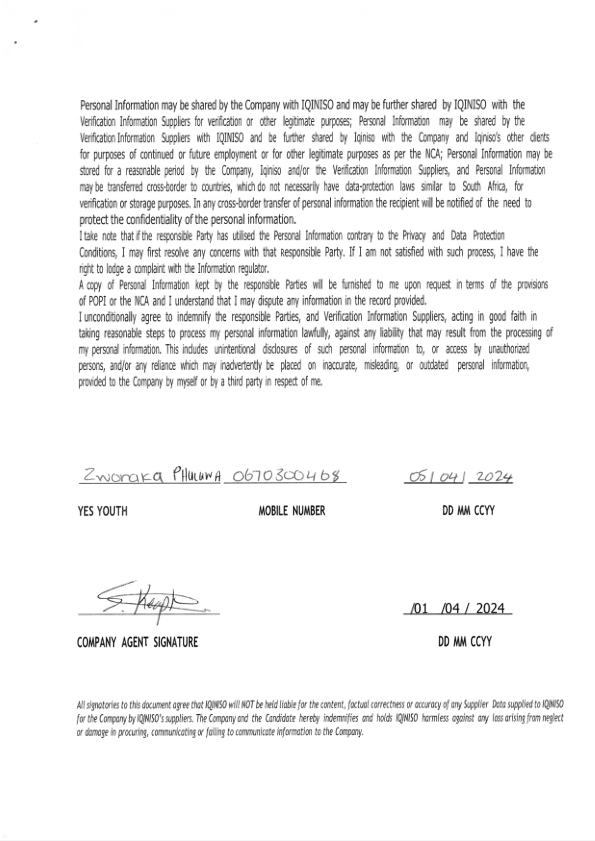 Personal Information may be shared by the Company with IQINISO and may be further shared by IQINISO with the
Verification Information Suppliers for verification or other legitimate purposes; Personal Information may be shared by the
Verification Information Suppliers with IQINISO and be further shared by Iqiniso with the Company and Iqiniso's other clients
for purposes of continued or future employment or for other legitimate purposes as per the NCA; Personal Information may be
stored for a reasonable period by the Company, Iqiniso and/or the Verification Information Suppliers, and Personal Information
may be transferred cross-border to countries, which do not necessarily have data-protection laws similar to South Africa, for
verification or storage purposes. In any cross-border transfer of personal information the recipient will be notified of the need to
protect the confidentiality of the personal information.
I take note that if the responsible Party has utilised the Personal Information contrary to the Privacy and Data Protection
Conditions, I may first resolve any concerns with that responsible Party. If I am not satisfied with such process, I have the
right to lodge a complaint with the Information regulator.
A copy of Personal Information kept by the responsible Parties will be furnished to me upon request in terms of the provisions
of POPI or the NCA and I understand that I may dispute any information in the record provided.
I unconditionally agree to indemnify the responsible Parties, and Verification Information Suppliers, acting in good faith in
taking reasonable steps to process my personal information lawfully, against any liability that may result from the processing of
my personal information. This includes unintentional disclosures of such personal information to, or access by unauthorized
persons, and/or any reliance which may inadvertently be placed on inaccurate, misleading, or outdated personal information,
provided to the Company by myself or by a third party in respect of me.
Zwonaka PHULUWA 0670300468 05/04/2024
YES YOUTH MOBILE NUMBER DD MM CCYY
/01 /04 / 2024
COMPANY AGENT SIGNATURE DD MM CCYY
All signatories to this document agree that IQINISO will NOT be held liable for the content, factual correctness or accuracy of any Supplier Data supplied to IQINISO
for the Company by IQINISO's suppliers. The Company and the Candidate hereby indemnifies and holds IQINISO harmless against any loss arising from neglect
or damage in procuring, communicating or failing to communicate information to the Company.